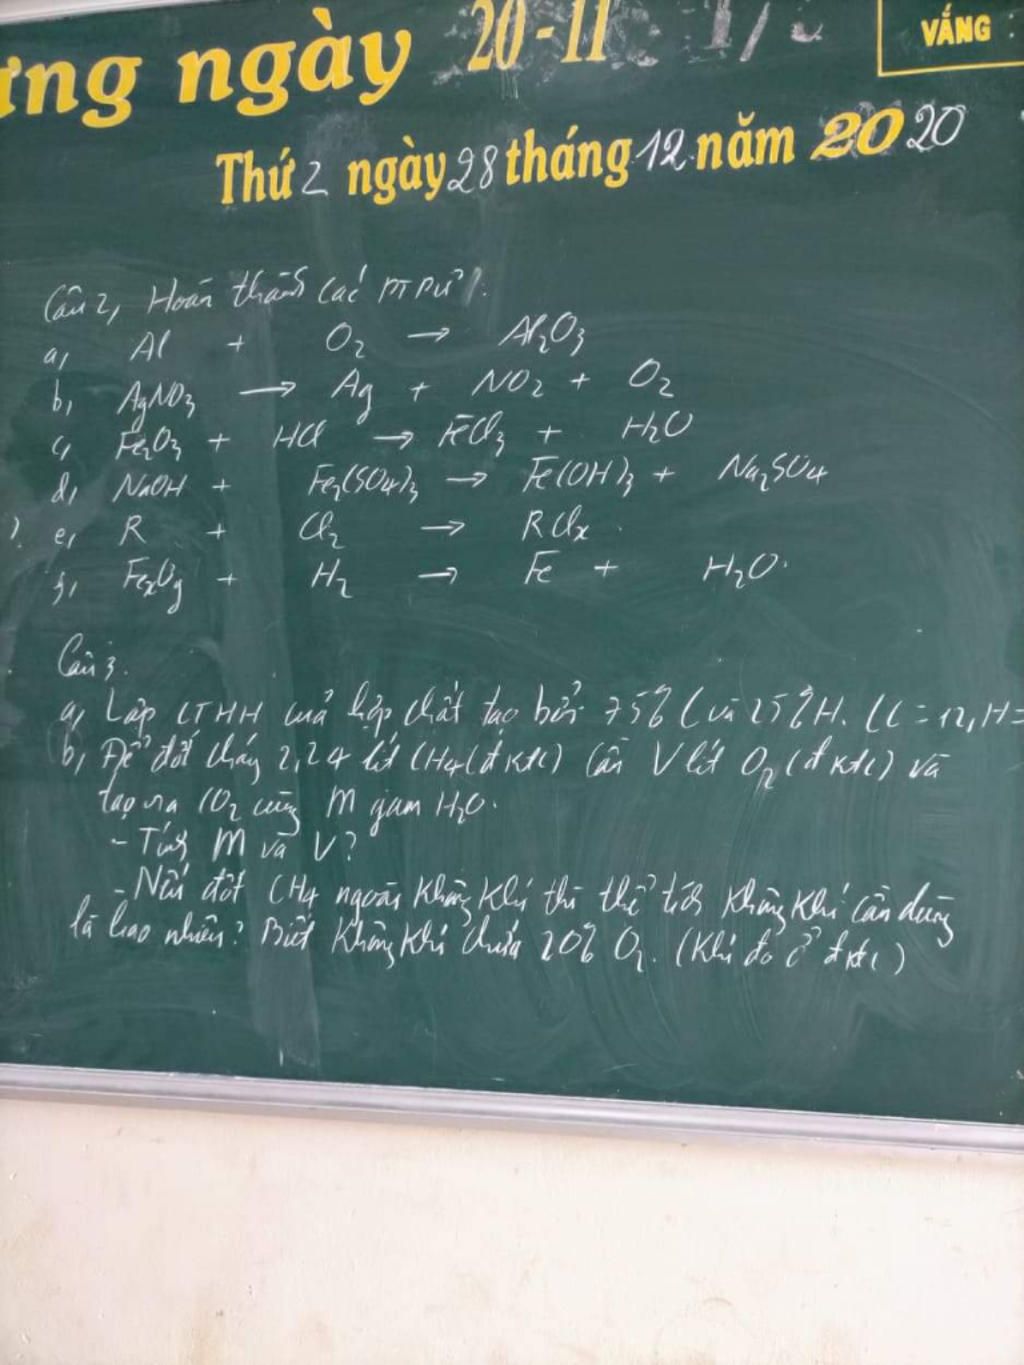 ưng ngày 20-11
VẮNG :
Thứ 2 ngày 28 tháng 12 năm 2020
Câu 2, Hoàn thành các PTPƯ?
a, Al + O₂ → Al₂O₃
b, AgNO₃ → Ag + NO₂ + O₂
c, Fe₂O₃ + HCl → FeCl₃ + H₂O
d, NaOH + Fe₂(SO₄)₃ → Fe(OH)₃ + Na₂SO₄
e, R + Cl₂ → RClₓ.
FeₓOy + H₂ → Fe + H₂O.
Câu 3.
a, Lập CTHH của hợp chất tạo bởi 75% C và 25% H. (C = 12, H =
b, Để đốt cháy 2,24 lít CH₄ (đktc) cần V lít O₂ (đktc) và
tạo ra CO₂ cùng m gam H₂O.
- Tính m và V?
- Nếu đốt CH₄ ngoài không khí thì thể tích không khí cần dùng
là bao nhiêu? Biết không khí chứa 20% O₂. (Khí đo ở đktc)